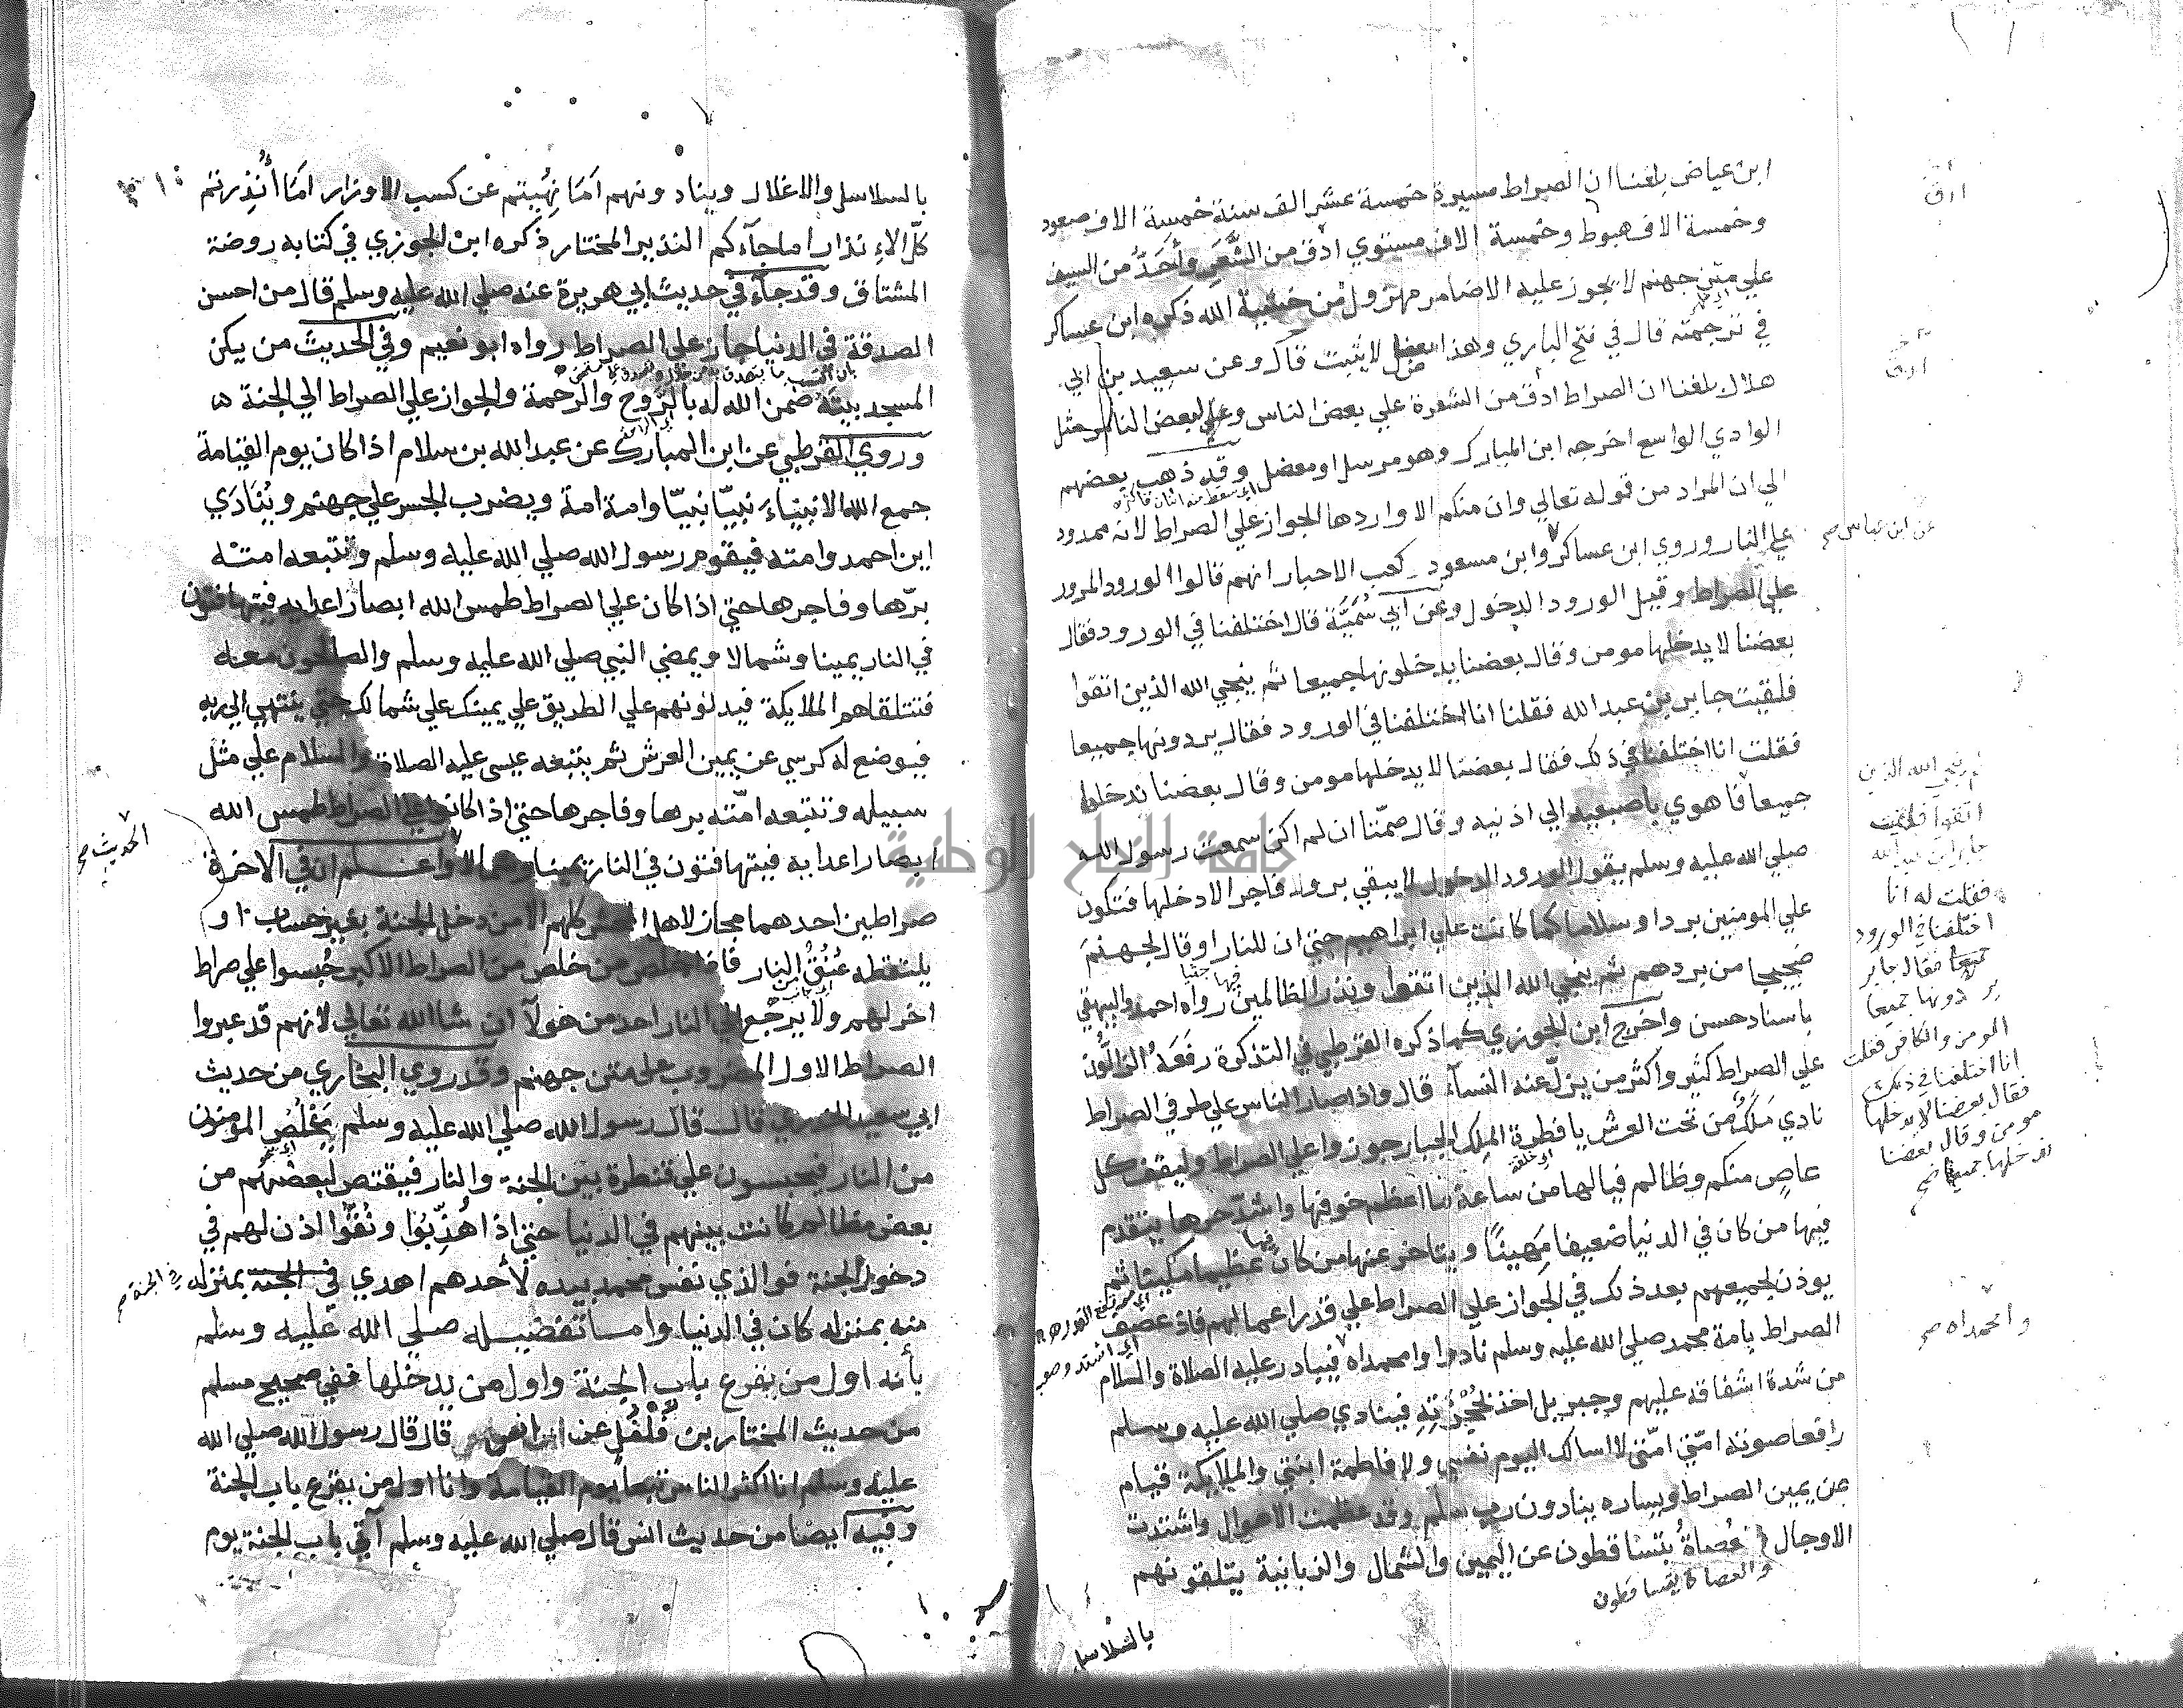 ابن عياض بلغنا ان الصراط مسيرة خمسة عشر الف سنة خمسة الاف صعود
وخمسة الاف هبوط وخمسة الاف مستوي ادق من الشعر وأحد من السيف
علي متن جهنم لا يجوز عليه الا ضامر مهزول من خشية الله ذكره ابن عساكر
في ترجمته قال في فتح الباري وهذا معضل لا يثبت قال وعن سعيد بن ابي
هلال بلغنا ان الصراط ادق من الشعرة علي بعض الناس وعلي لبعض الناس مثل
الوادي الواسع اخرجه ابن المبارك وهو مرسل او معضل وقد ذهب بعضهم
الي ان المراد من قوله تعالي وان منكم الا واردها الجواز علي الصراط لانه ممدود
علي النار وروي ابن عساكر وابن مسعود كعب الاحبار انهم قالوا الورود المرور
علي الصراط وقيل الورود الدخول وعن ابي سُمَيَّة قال اختلفنا في الورود فقال
بعضنا لا يدخلها مومن وقال بعضنا يدخلونها جميعا ثم ينجي الله الذين اتقوا
فلقيت جابر بن عبد الله فقلنا انا اختلفنا في الورود فقال يردونها جميعا
فقلت انا اختلفنا في ذلك فقال بعضنا لا يدخلها مومن وقال بعضنا ندخلها
جميعا فاهوي باصبعيه الي اذنيه وقال صمّتا ان لم اكن سمعت رسول الله
صلي الله عليه وسلم يقول الورود الدخول لا يبقي بر ولا فاجر الا دخلها فتكون
علي المومنين بردا وسلاما كما كانت علي ابراهيم حتي ان للنار او قال لجهنم
ضجيجا من بردهم ثم ينجي الله الذين اتقوا ونذر الظالمين فيها جثيا رواه احمد والبيهقي
باسناد حسن واخرج ابن الجوزي كما ذكره القرطبي في التذكرة رفعه الزالون
علي الصراط كثير واكثر من يزل عنه النسآء قال واذا صار الناس علي طرفي الصراط
نادي مَلَكٌ من تحت العرش يا فطرة الملك الجبار جوزوا علي الصراط وليقف كل
عاصٍ منكم وظالم فيالها من ساعة ما اعظم خوفها واشد حرها يتقدم
فيها من كان في الدنيا ضعيفا مَهينًا ويتاخر عنها من كان فيها عظيما مكينا ثم
يوذن لجميعهم بعد ذلك في الجواز علي الصراط علي قدر اعمالهم فاذا عصف
الصراط بامة محمد صلي الله عليه وسلم نادوا وامحمداه فيبادر عليه الصلاة والسلام
من شدة اشفاقه عليهم وجبريل اخذ بحُجْزَتِه فينادي صلي الله عليه وسلم
رافعا صوته امّتي امّتي لا اسالك اليوم نفسي ولا فاطمة ابنتي والملايكة قيام
عن يمين الصراط ويساره ينادون رب سلم وقد عظمت الاهوال واشتدت
الاوجال عُصاة يتساقطون عن اليمين والشمال والزبانية يتلقونهم
والعصاة يتساقطون
بالسلاسل
ادق
ادق
عن ابن عباس صح
ثم ينجي الله الذين
اتقوا فلقيت
جابر بن عبد الله
فقلت له انا
اختلفنا في الورود
جميعا فقال جابر
يردونها جميعا
المومن والكافر فقلت
انا اختلفنا في ذلك
فقال بعضنا لا يدخلها
مومن وقال بعضنا
ندخلها جميعا صح
وامحمداه صح
بالسلاسل والاغلال وينادونهم اَمَا نُهِيتم عن كسب الاوزار اَمَا أُنْذِرتم
كلّ الانذار اما جآءكم النذير المختار ذكره ابن الجوزي في كتابه روضة
المشتاق وقد جآء في حديث ابي هريرة عنه صلي الله عليه وسلم قال من احسن
الصدقة في الدنيا جاز علي الصراط رواه ابو نعيم وفي الحديث من يكن
المسجد بيتَه ضمن الله له بالرَّوح والرحمة والجواز علي الصراط الي الجنة
وروي القرطبي عن ابن المبارك عن عبد الله بن سلام اذا كان يوم القيامة
جمع الله الانبياءَ نبيّا نبيّا وامة امة ويضرب الجسر علي جهنم ويُنَادَي
اين احمد وامته فيقوم رسول الله صلي الله عليه وسلم وتتبعه امته
برّها وفاجرها حتي اذا كان علي الصراط طمس الله ابصار اعدايه فيتهافتون
في النار يمينا وشمالا ويمضي النبي صلي الله عليه وسلم والصالحون معه
فتتلقاهم الملايكة فيدلونهم علي الطريق علي يمينك علي شمالك حتي ينتهي الي ربه
فيوضع له كرسي عن يمين العرش ثم يتبعه عيسي عليه الصلاة والسلام علي مثل
سبيله وتتبعه امّته برها وفاجرها حتي اذا كانوا علي الصراط طمس الله
ابصار اعدايه فيتهافتون في النار يمينا وشمالا واعلم ان في الاخرة
صراطين احدهما مجاز لاهل المحشر كلهم الا من دخل الجنة بغير حساب او
يلتقطه عُنُقُ النار فاذا خلص من خلص من الصراط الاكبر حُبسوا علي صراط
اخر لهم ولا يرجع الي النار احد من هولآء ان شا الله تعالي لانهم قد عبروا
الصراط الاول المضروب علي متن جهنم وقد روي البخاري من حديث
ابي سعيد الخدري قال قال رسول الله صلي الله عليه وسلم يَخْلُصُ المومنون
من النار فيحبسون علي قنطرة بين الجنة والنار فيقتص لبعضهم من
بعض مظالم كانت بينهم في الدنيا حتي اذا هُذِّبُوا ونُقُّوا اذن لهم في
دخول الجنة فوالذي نفس محمد بيده لأحدهم اهدي في الجنة بمنزله
منه بمنزله كان في الدنيا واما تفضيله صلي الله عليه وسلم
بأنه اول من يقرع باب الجنة واول من يدخلها ففي صحيح مسلم
من حديث المختار بن فُلْفُل عن انس قال قال رسول الله صلي الله
عليه وسلم انا اكثر الناس تبعا يوم القيامة وانا اول من يقرع باب الجنة
وفيه ايضا من حديث انس قال صلي الله عليه وسلم آتي باب الجنة يوم
الحديث صح
في الجنة صح
جامعة النجاح الوطنية